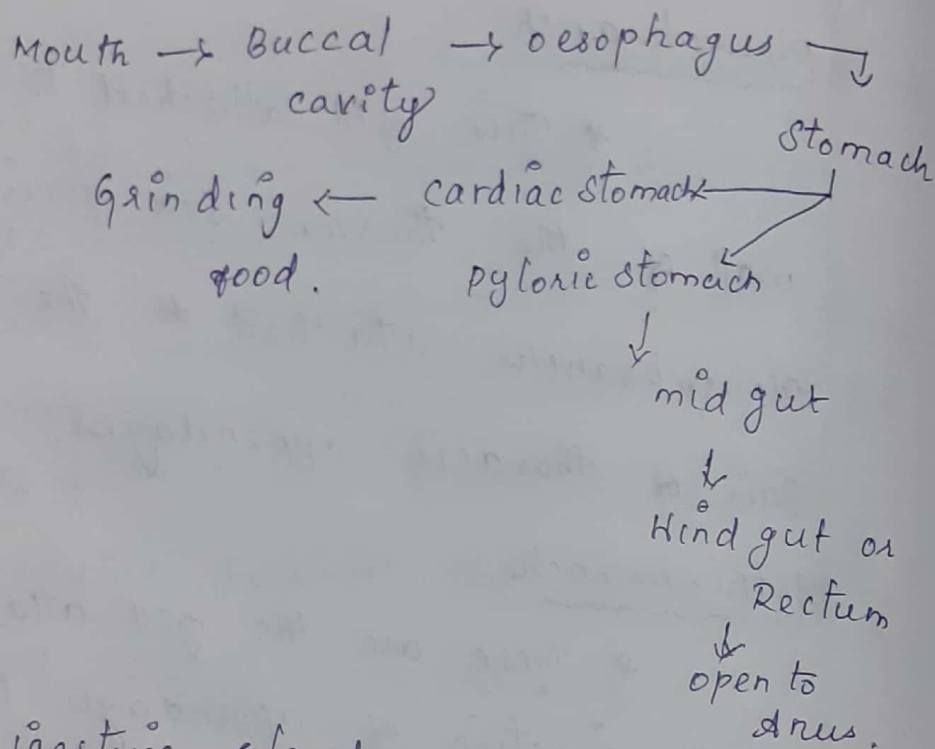 Mouth → Buccal → oesophagus →
cavity
Stomach
Grinding ← cardiac stomach
food. pyloric stomach
↓
mid gut
↓
Hind gut or
Rectum
↓
open to
Anus.